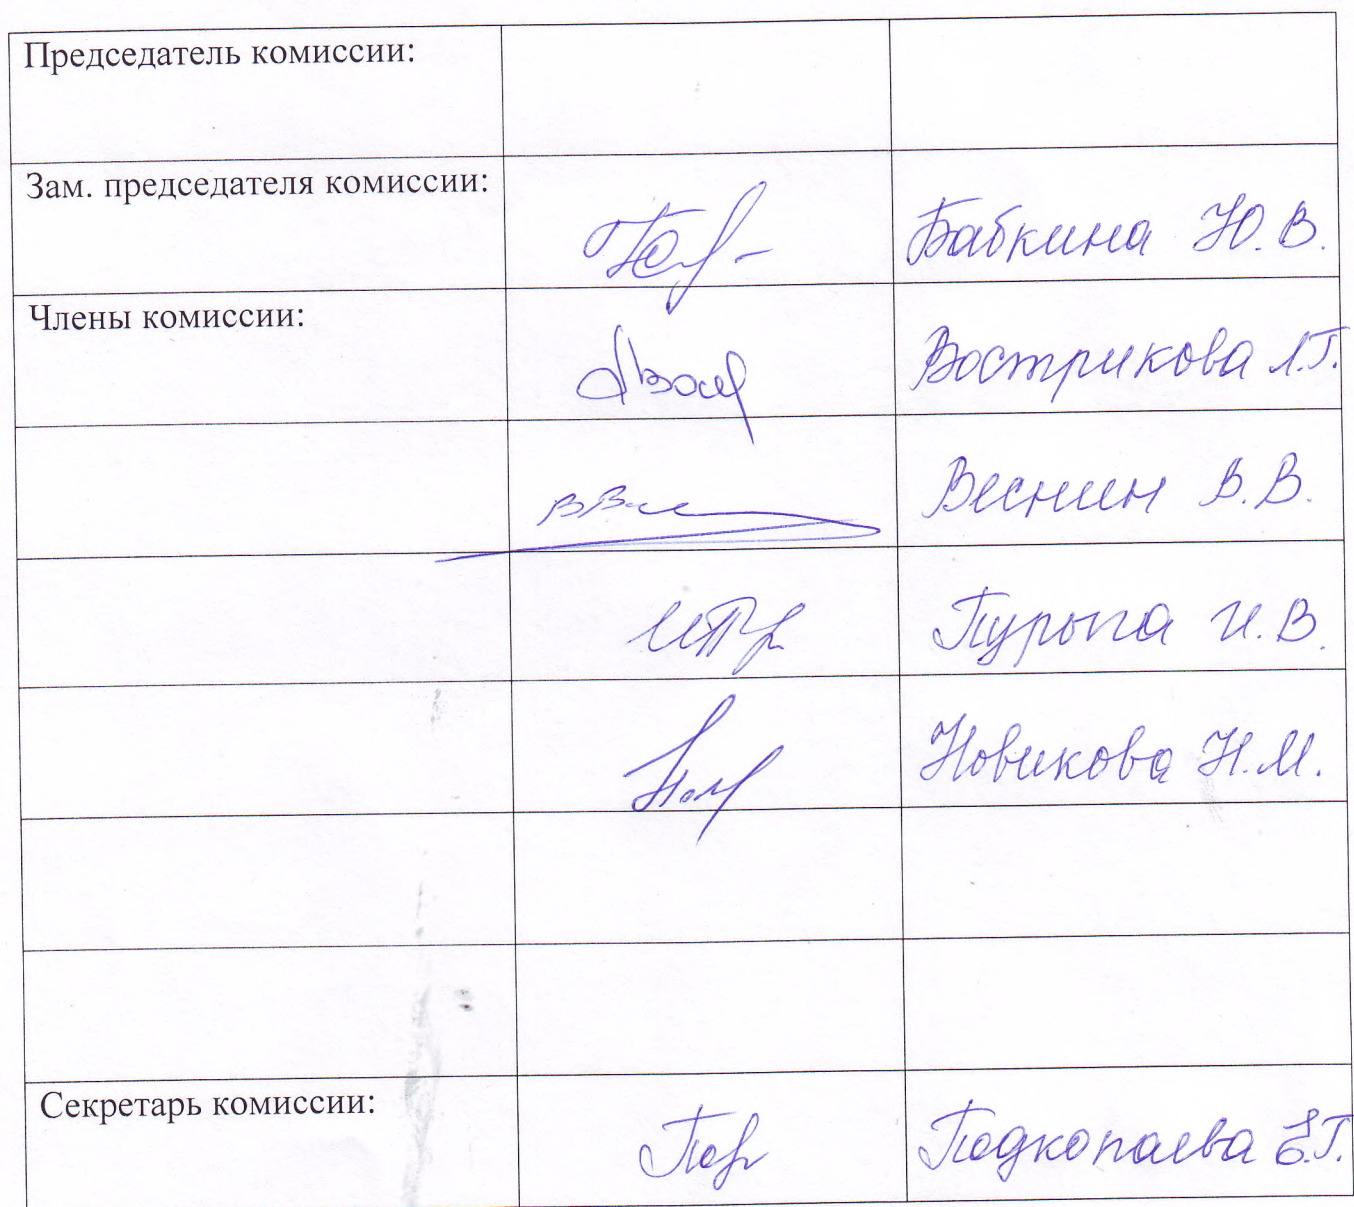 Председатель комиссии:
Зам. председателя комиссии: Бабкина Ю. В.
Члены комиссии: Вострикова Л.Г.
Веснин В. В.
Пурыга И. В.
Новикова Н. М.
Секретарь комиссии: Подкопаева Е.Г.